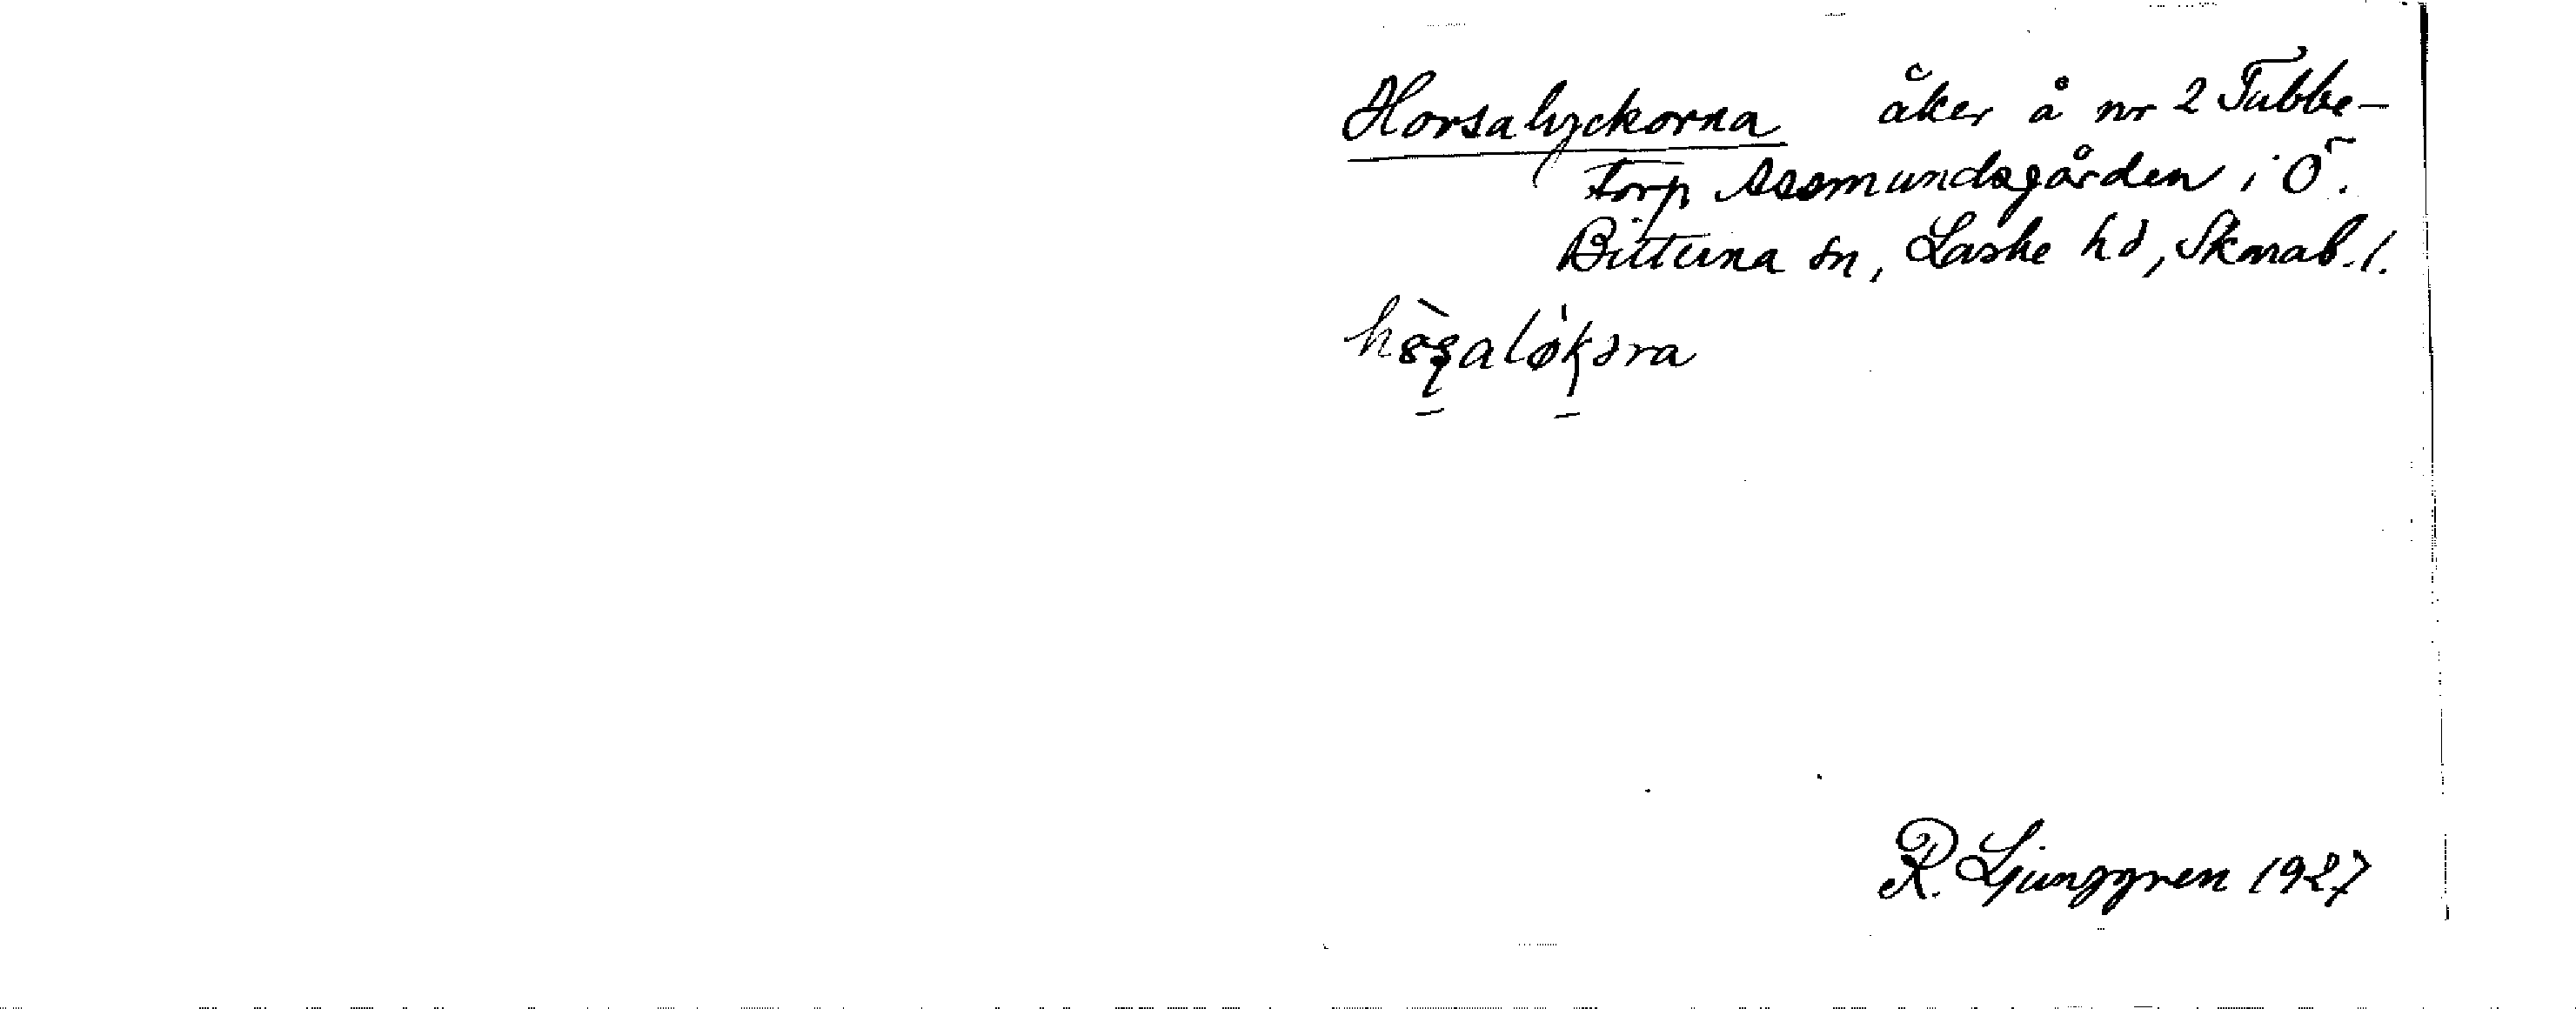 Horsalyckorna åker å nr 2 Tubbe-
torp Assmundsgården i Ö.
Bitterna sn, Laske hd, Skarab. l.
R. Ljunggren 1927